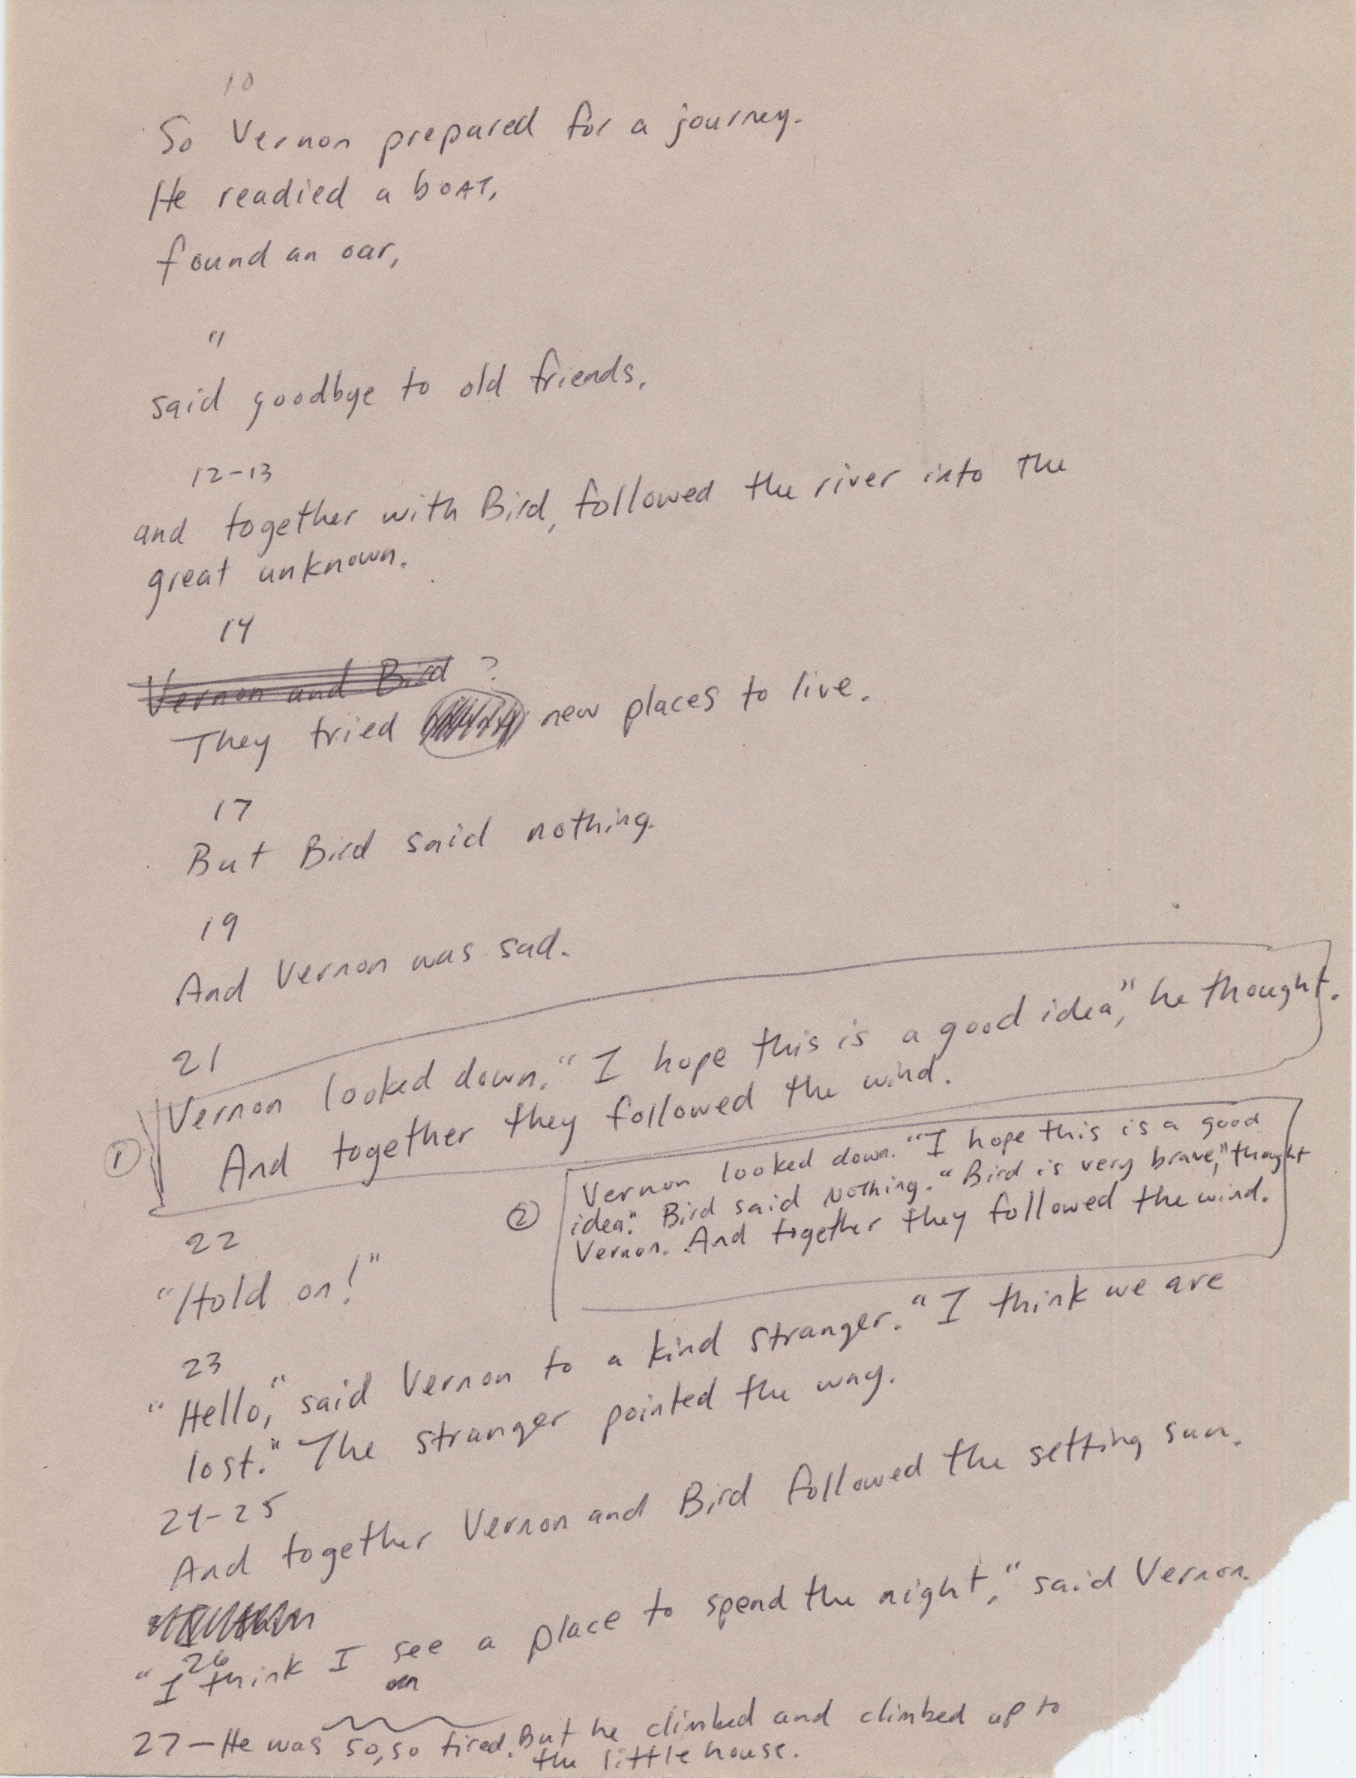 10
So Vernon prepared for a journey.
He readied a boat,
found an oar,
11
said goodbye to old friends,
12-13
and together with Bird, followed the river into the
great unknown.
14
Vernon and Bird ?
They tried new places to live.
17
But Bird said nothing.
19
And Vernon was sad.
21
Vernon looked down. "I hope this is a good idea," he thought.
And together they followed the wind.
1
2
Vernon looked down. "I hope this is a good
idea." Bird said nothing. "Bird is very brave," thought
Vernon. And together they followed the wind.
22
"Hold on!"
23
"Hello," said Vernon to a kind stranger. "I think we are
lost." The stranger pointed the way.
24-25
And together Vernon and Bird followed the setting sun.
26
"I think I see a place to spend the night," said Vernon.
27 - He was so, so tired. But he climbed and climbed up to
the little house.